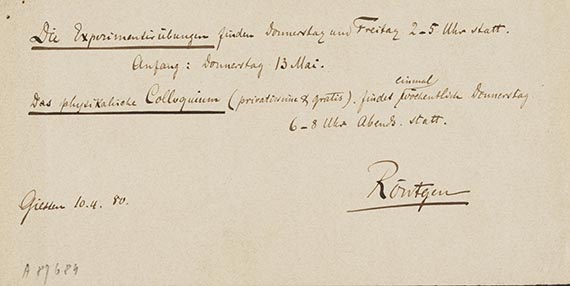 Die Experimentirübungen finden Donnerstag und Freitag 2-5 Uhr statt.
Anfang: Donnerstag 13 Mai.
einmal
Das physikalische Colloquium (privatissime & gratis). findet wöchentlich Donnerstag
6-8 Uhr Abends. statt.
Röntgen
Giessen 10.4. 80.
A 89684